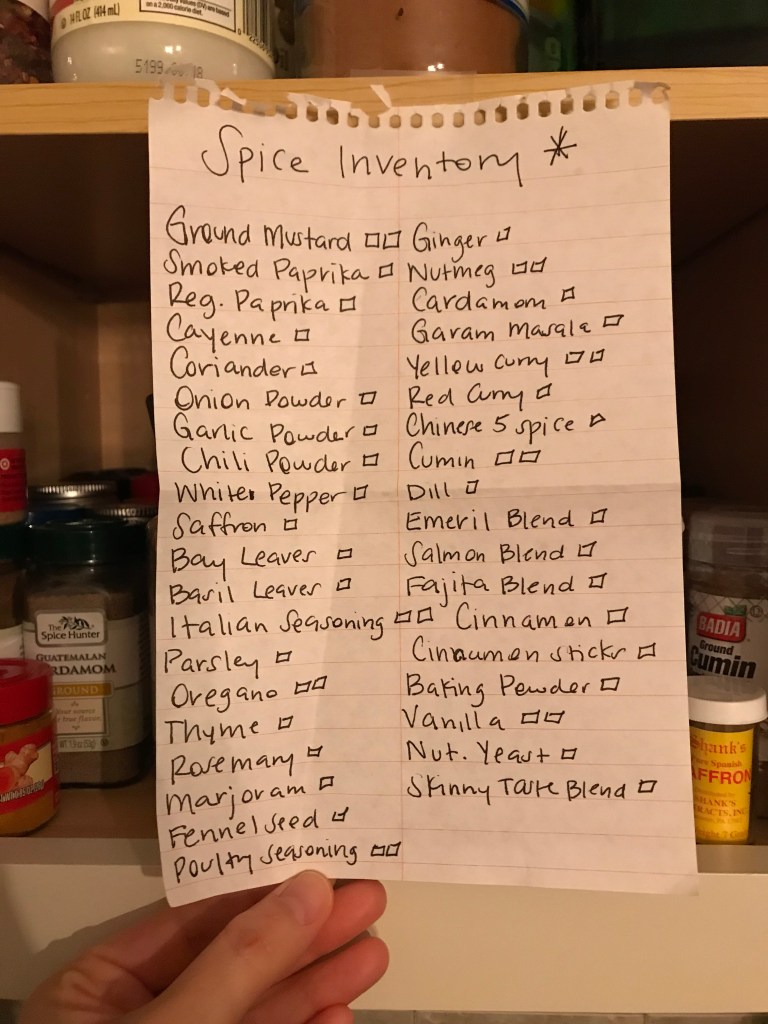 14 FL OZ (414 mL)
on a 2,000 calorie diet.
5199
Spice Inventory *
Ground Mustard □□
Smoked Paprika □
Reg. Paprika □
Cayenne □
Coriander □
Onion Powder □
Garlic Powder □
Chili Powder □
White Pepper □
Saffron □
Bay Leaves □
Basil Leaves □
Italian Seasoning □□
Parsley □
Oregano □□
Thyme □
Rosemary □
Marjoram □
Fennel seed □
Poulty Seasoning □□
Ginger □
Nutmeg □□
Cardamom □
Garam Masala □
Yellow Curry □□
Red Curry □
Chinese 5 spice □
Cumin □□
Dill □
Emeril Blend □
Salmon Blend □
Fajita Blend □
Cinnamon □
Cinnamon sticks □
Baking Powder □
Vanilla □□
Nut. Yeast □
Skinny Taste Blend □
The
Spice Hunter
GUATEMALAN
RDAMOM
GROUND
BADIA
Ground
Cumin
Shank's
Spanish
AFFRON
SHANK'S